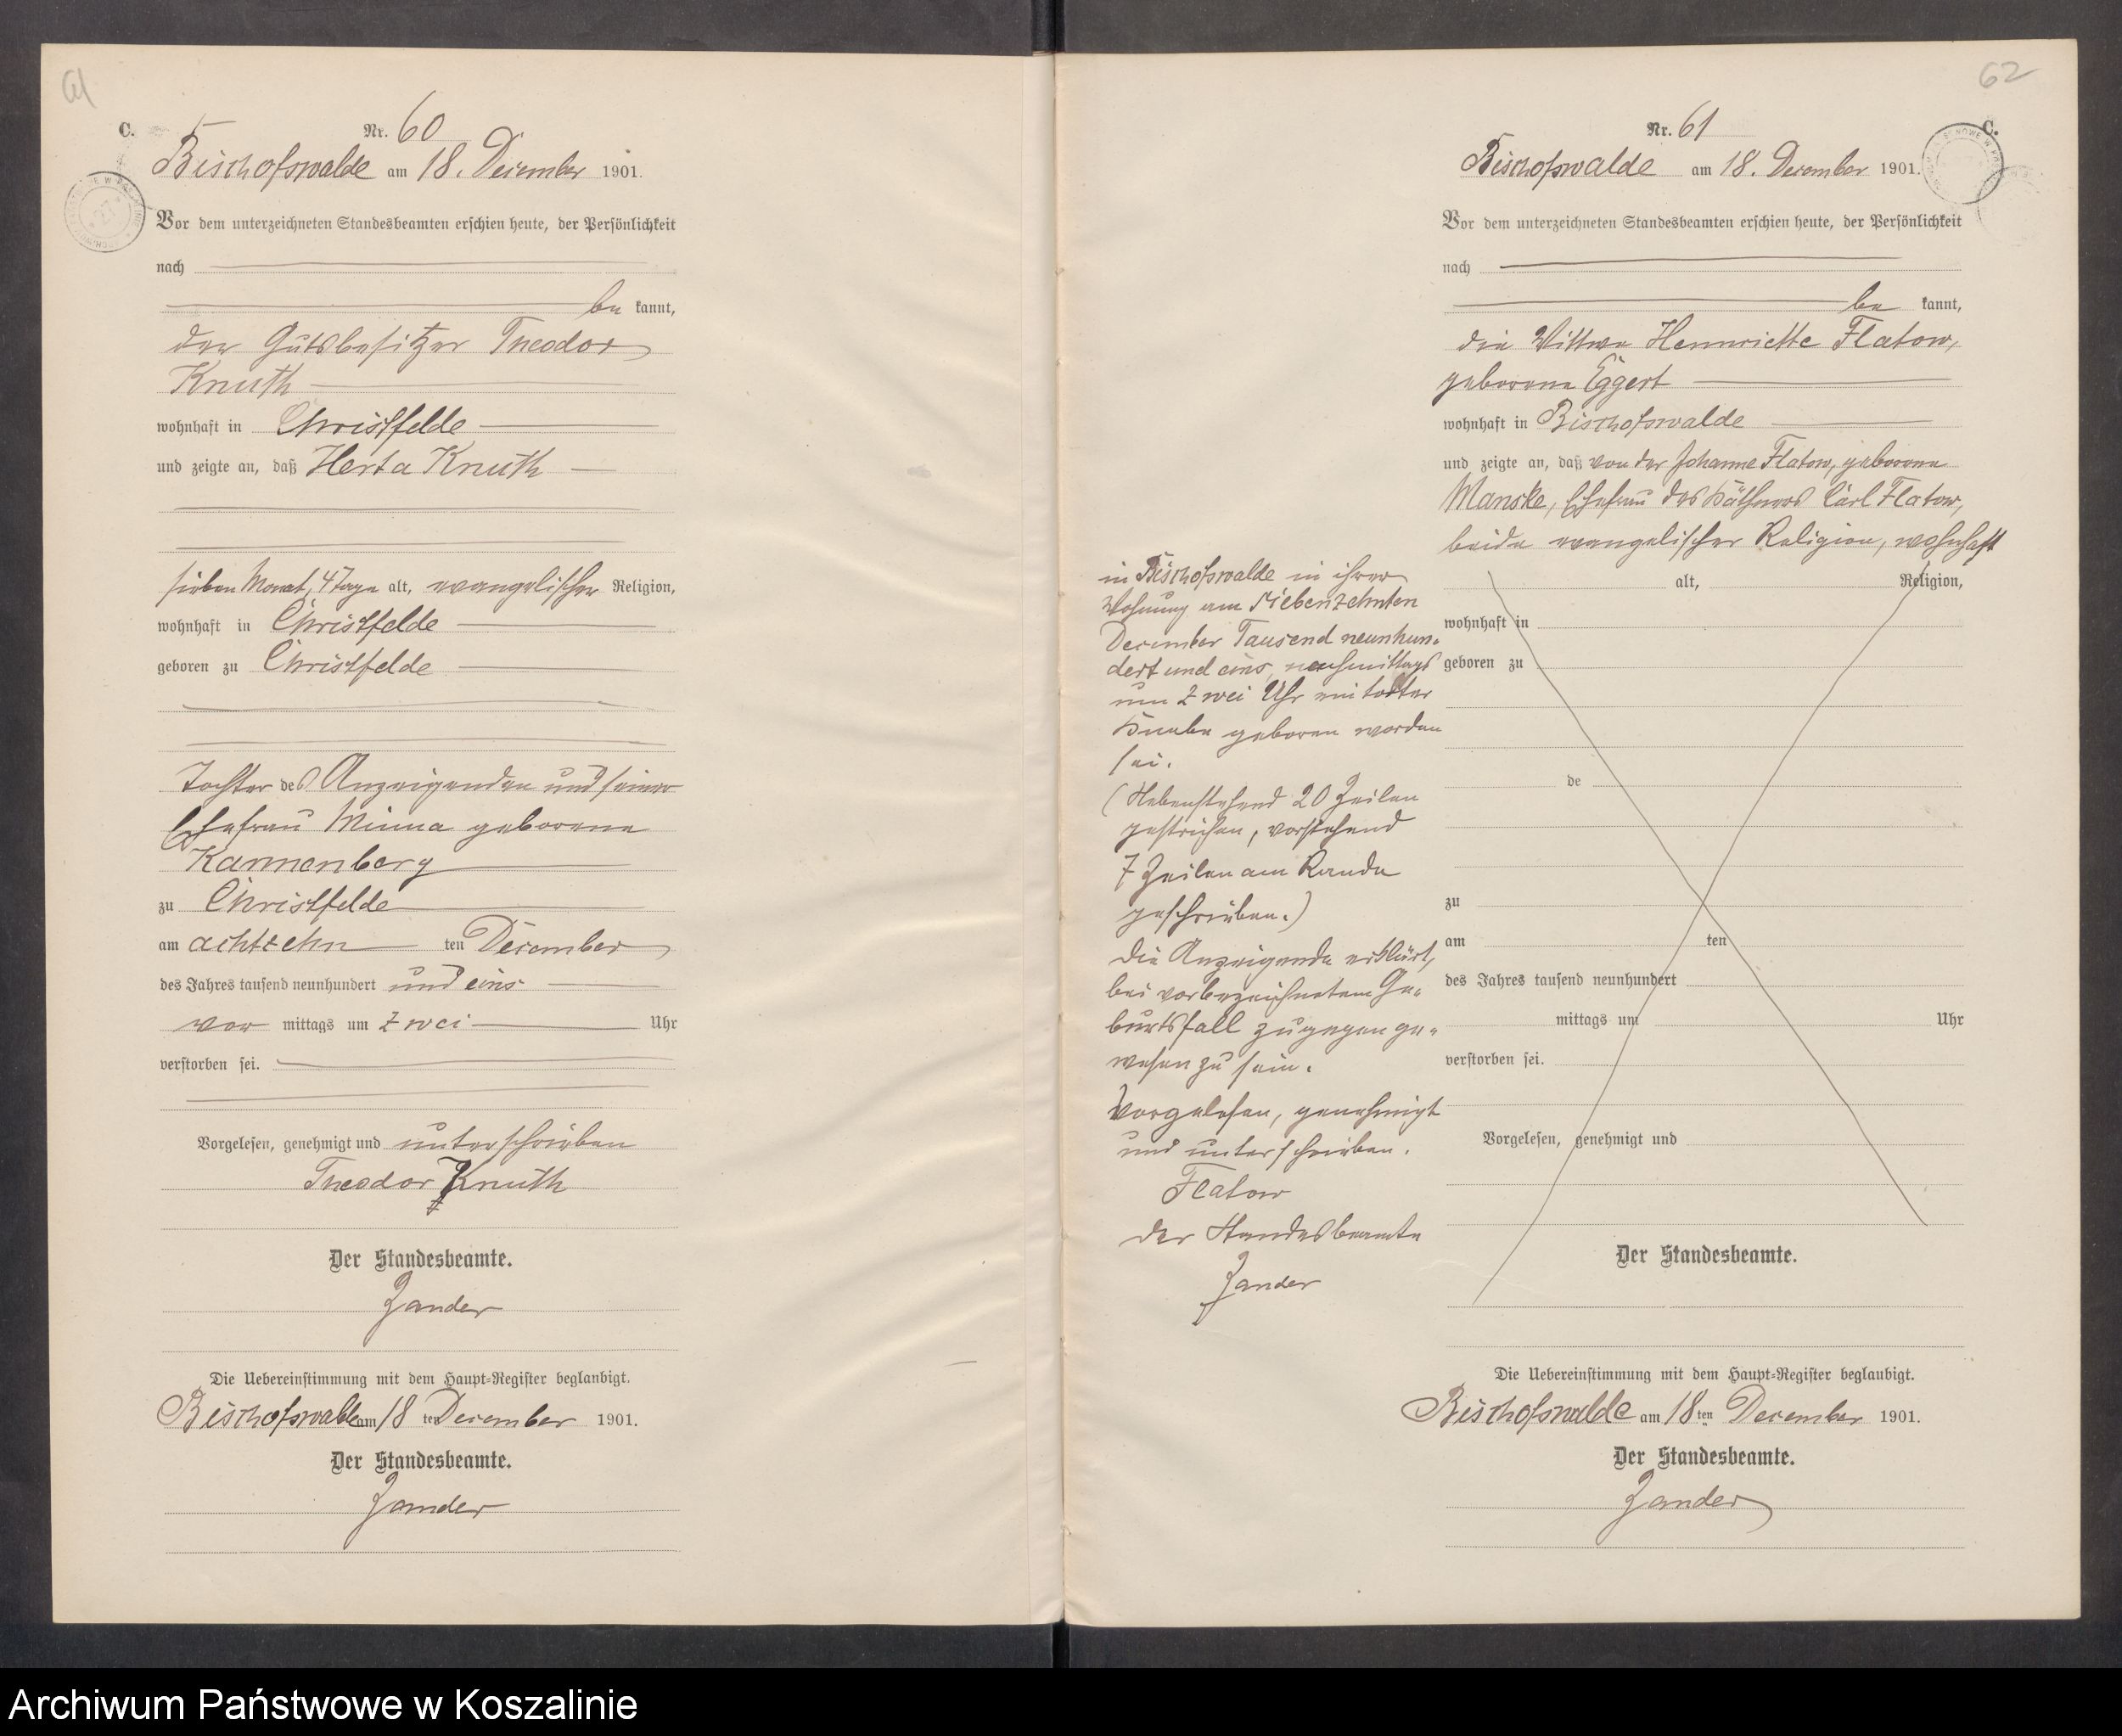 61
C.
Nr. 60
Bischofswalde am 18. December 1901.
Vor dem unterzeichneten Standesbeamten erschien heute, der Persönlichkeit
nach
be kannt,
der Gutsbesitzer Theodor
Knuth
wohnhaft in Christfelde
und zeigte an, daß Herta Knuth
sieben Monat, 4 Tage alt, evangelischer Religion,
wohnhaft in Christfelde
geboren zu Christfelde
Tochter des Anzeigenden und seiner
Ehefrau Minna geborene
Kannenberg
zu Christfelde
am achtzehn ten December
des Jahres tausend neunhundert und eins
vor mittags um zwei Uhr
verstorben sei.
Vorgelesen, genehmigt und unterschrieben
Theodor Knuth
Der Standesbeamte.
Zander
Die Uebereinstimmung mit dem Haupt-Register beglaubigt.
Bischofswalde am 18 ten December 1901.
Der Standesbeamte.
Zander
62
C.
Nr. 61
Bischofswalde am 18. December 1901.
Vor dem unterzeichneten Standesbeamten erschien heute, der Persönlichkeit
nach
be kannt,
die Wittwe Hennriette Flatow,
geborene Eggert
wohnhaft in Bischofswalde
und zeigte an, daß von der Johanne Flatow, geborene
Manske, Ehefrau des Käthners Carl Flatow,
beide evangelischer Religion, wohnhaft
in Bischofswalde in ihrer
Wohnung am siebenzehnten
December Tausend neunhun-
dert und eins, nachmittags
um zwei Uhr ein todter
Knabe geboren worden
sei.
(Nebenstehend 20 Zeilen
gestrichen, vorstehend
7 Zeilen am Rande
geschrieben.)
Die Anzeigende erklärt,
bei vorbezeichnetem Ge-
burtsfall zugegen ge-
wesen zu sein.
Vorgelesen, genehmigt
und unterschrieben.
Flatow
Der Standesbeamte
Zander
alt, Religion,
wohnhaft in
geboren zu
de
zu
am ten
des Jahres tausend neunhundert
mittags um Uhr
verstorben sei.
Vorgelesen, genehmigt und
Der Standesbeamte.
Die Uebereinstimmung mit dem Haupt-Register beglaubigt.
Bischofswalde am 18 ten December 1901.
Der Standesbeamte.
Zander
Archiwum Państwowe w Koszalinie